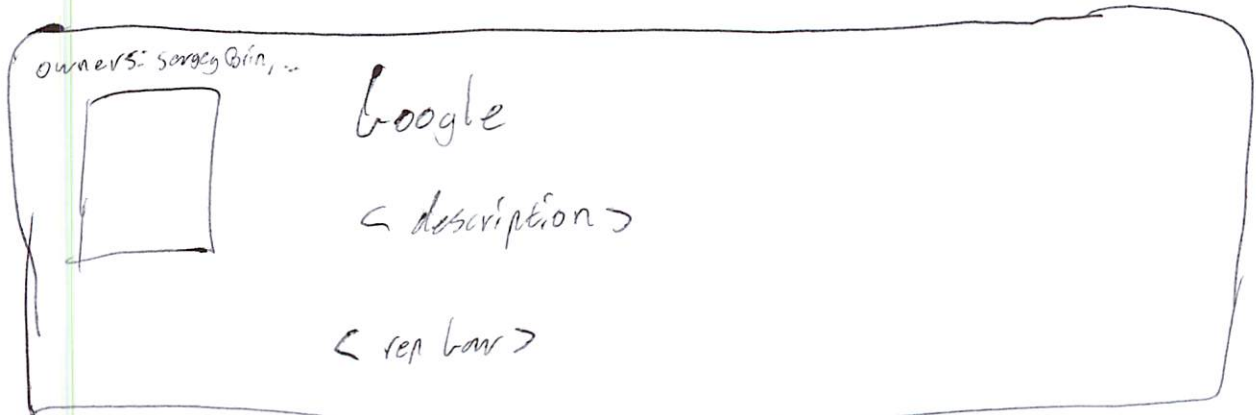 owners: sergey Brin, ...
Google
< description >
< rep bar >